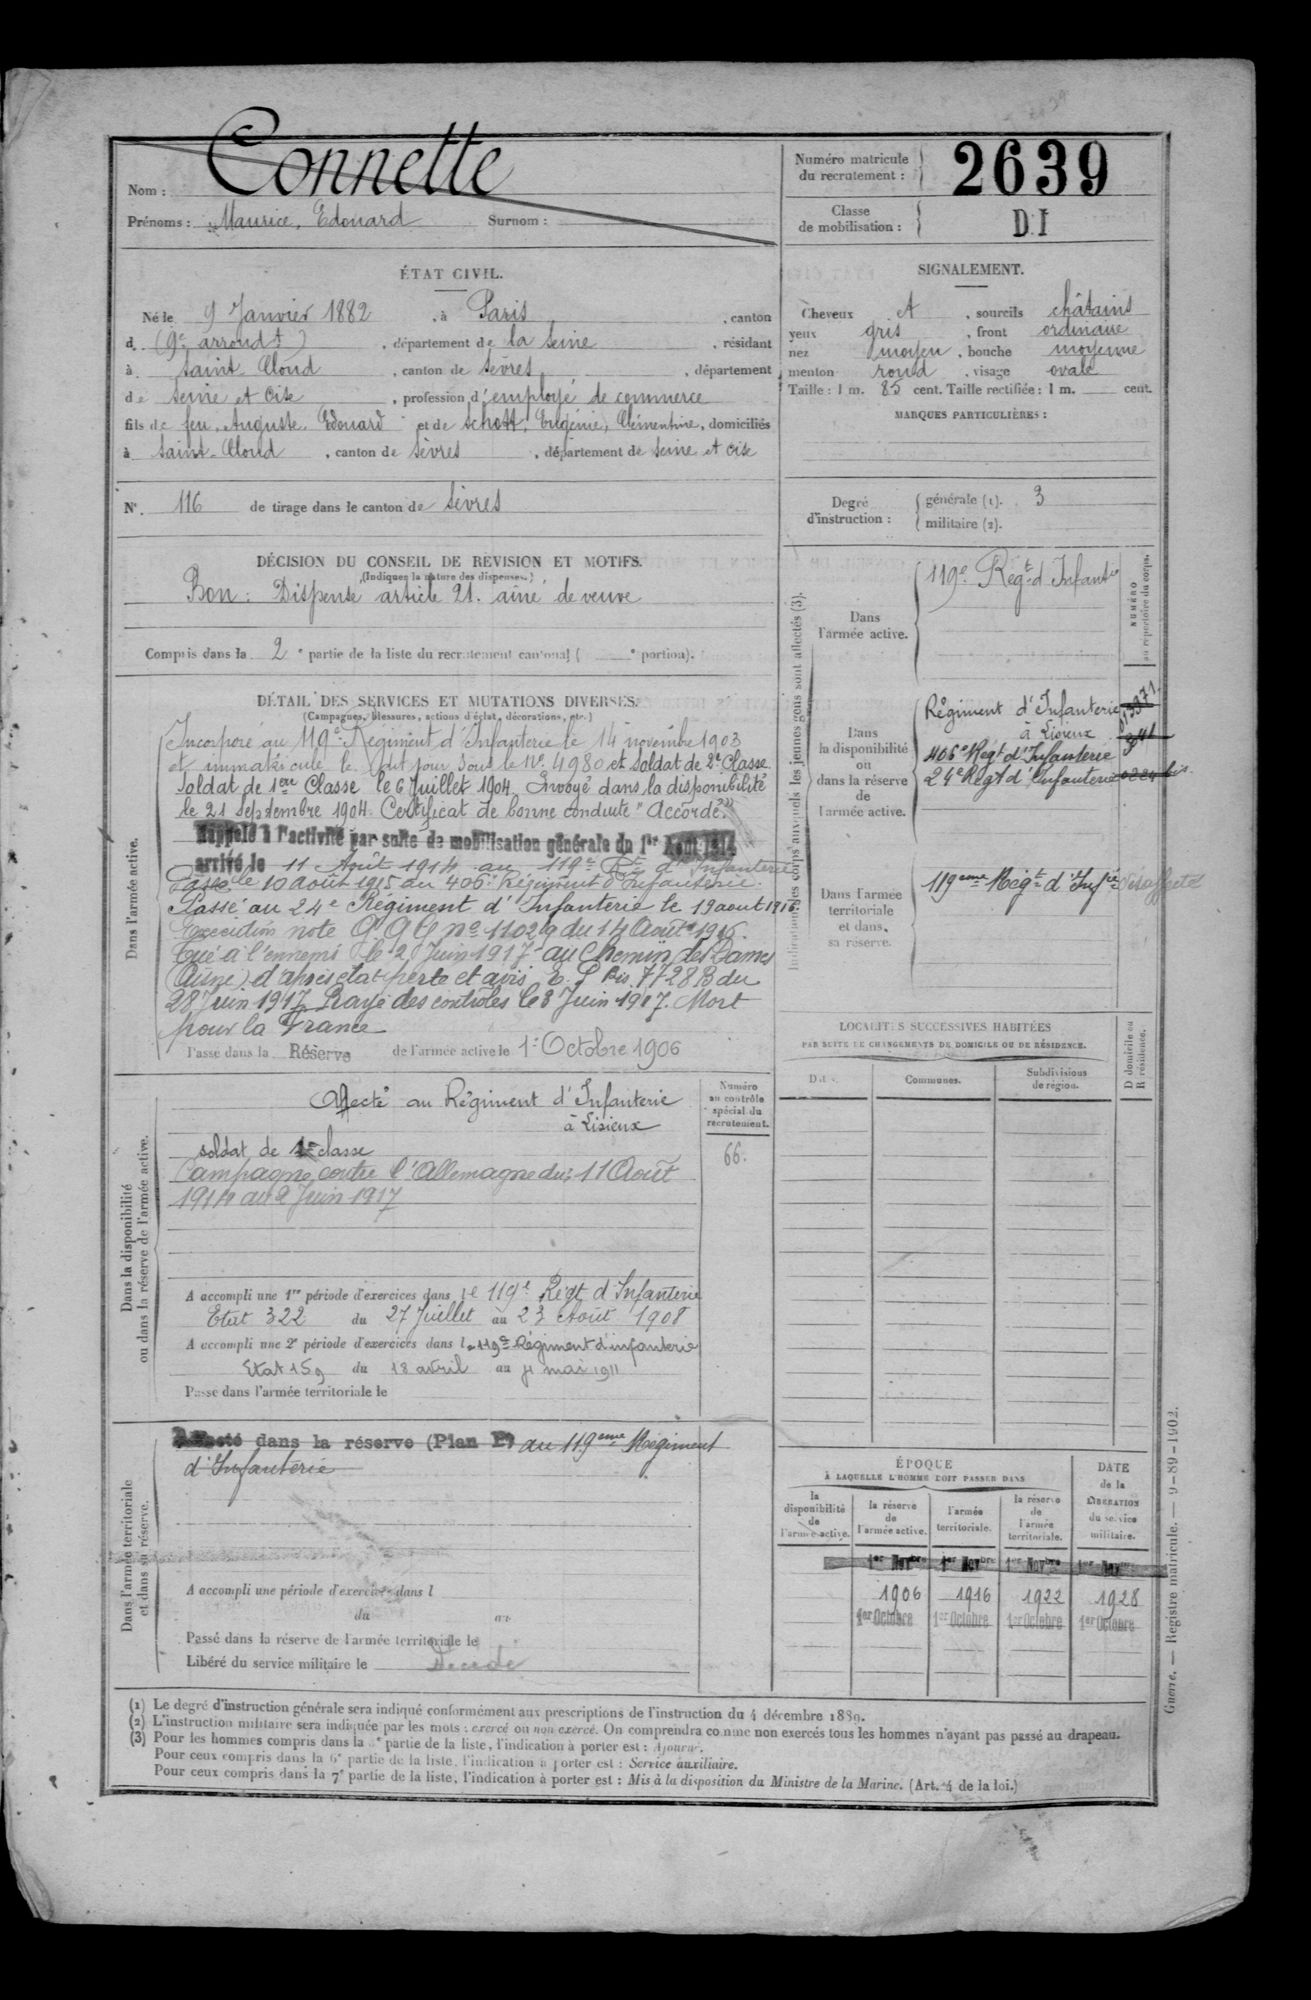 Nom : Connette
Prénoms : Maurice, Edouard Surnom :
Numéro matricule du recrutement : 2639
Classe de mobilisation : D.I
ÉTAT CIVIL.
Né le 9 Janvier 1882, à Paris, canton
d (9e arrondt), département de la Seine, résidant
à Saint-Cloud, canton de Sèvres, département
de Seine et Oise, profession d'employé de commerce
fils de feu, Auguste, Edouard et de Schott, Eugénie, Clémentine, domiciliés
à Saint-Cloud, canton de Sèvres, département de Seine et Oise
N° 116 de tirage dans le canton de Sèvres
SIGNALEMENT.
Cheveux et, sourcils châtains
yeux gris, front ordinaire
nez moyen, bouche moyenne
menton rond, visage ovale
Taille : 1 m. 85 cent. Taille rectifiée : 1 m. cent.
MARQUES PARTICULIÈRES :
Degré d'instruction : générale (1). 3
militaire (2).
DÉCISION DU CONSEIL DE REVISION ET MOTIFS.
(Indiquer la nature des dispenses.)
Bon : Dispensé article 21. ainé de veuve
Compris dans la 2e partie de la liste du recrutement cantonal ( e portion).
DÉTAIL DES SERVICES ET MUTATIONS DIVERSES.
(Campagnes, blessures, actions d'éclat, décorations, etc.)
Dans l'armée active.
Incorporé au 119e Régiment d'Infanterie le 14 novembre 1903
et immatriculé le dit jour sous le N° 4980 et Soldat de 2e Classe.
Soldat de 1ère Classe le 6 Juillet 1904. Envoyé dans la disponibilité
le 21 Septembre 1904. Certificat de bonne conduite "Accordé"
Rappelé à l'activité par suite de mobilisation générale du 1er Août 1914
arrivé le 11 Août 1914 au 119e Rt d'Infanterie
Passé le 10 août 1915 au 406e Régiment d'Infanterie.
Passé au 24e Régiment d'Infanterie le 19 aout 1916.
Exécution note G.Q.G. n° 11029 du 14 Août 1916.
Tué à l'ennemi le 2 Juin 1917 au Chemin des Dames
(Aisne) d'après état perte et avis E. P. Bis 7728 B du
28 Juin 1917. Rayé des contrôles le 3 Juin 1917. Mort
pour la France
Passé dans la Réserve de l'armée active le 1er Octobre 1906
Indication des corps auxquels les jeunes gens sont affectés (3).
NUMÉRO au repertoire du corps.
Dans l'armée active.
119e Regt d'Infantie
Dans la disponibilité ou dans la réserve de l'armée active.
Régiment d'Infanterie
à Lisieux
406e Regt d'Infanterie
24e Regt d'Infanterie
Dans l'armée territoriale et dans sa réserve.
119eme Régt d'Infie Désaffecté
LOCALITÉS SUCCESSIVES HABITÉES
PAR SUITE DE CHANGEMENTS DE DOMICILE OU DE RÉSIDENCE.
Dates. Communes. Subdivisions de région. D domicile ou R résidence.
Dans la disponibilité ou dans la réserve de l'armée active.
Numéro au contrôle spécial du recrutement.
66.
Affecté au Régiment d'Infanterie
à Lisieux
soldat de 1e classe
Campagne contre l'Allemagne du 11 Août
1914 au 2 Juin 1917
A accompli une 1re période d'exercices dans le 119e Régt d'Infanterie
Etat 322 du 27 Juillet au 23 Août 1908
A accompli une 2e période d'exercices dans le 119e Régiment d'infanterie
Etat 159 du 18 avril au 4 mai 1911
Passé dans l'armée territoriale le
Dans l'armée territoriale et dans sa réserve.
Affecté dans la réserve (Plan ) au 119eme Régiment
d'Infanterie
A accompli une période d'exercices dans l
du au
Passé dans la réserve de l'armée territoriale le
Libéré du service militaire le Décédé
ÉPOQUE
À LAQUELLE L'HOMME DOIT PASSER DANS
la disponibilité de l'armée active. la réserve de l'armée active. l'armée territoriale. la réserve de l'armée territoriale.
DATE de la LIBÉRATION du service militaire.
1er Novbre 1er Novbre 1er Novbre 1er Novbre
1906 1916 1922 1928
1er Octobre 1er Octobre 1er Octobre 1er Octobre
(1) Le degré d'instruction générale sera indiqué conformément aux prescriptions de l'instruction du 4 décembre 1889.
(2) L'instruction militaire sera indiquée par les mots : exercé ou non exercé. On comprendra comme non exercés tous les hommes n'ayant pas passé au drapeau.
(3) Pour les hommes compris dans la 5e partie de la liste, l'indication à porter est : Ajourné.
Pour ceux compris dans la 6e partie de la liste, l'indication à porter est : Service auxiliaire.
Pour ceux compris dans la 7e partie de la liste, l'indication à porter est : Mis à la disposition du Ministre de la Marine. (Art. 4 de la loi.)
Guerre. — Registre matricule. — 9-89-1902.